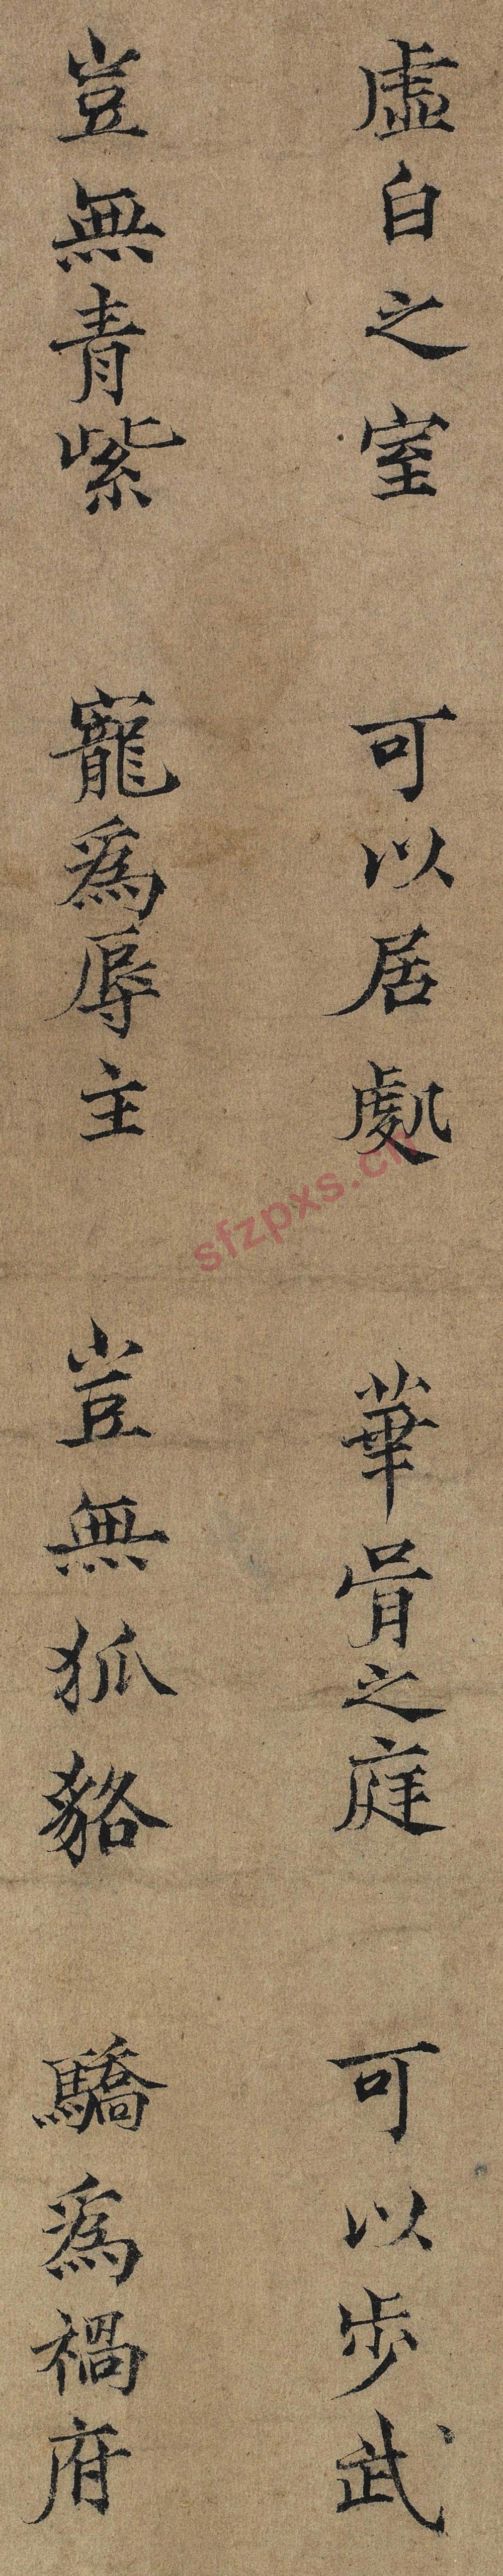 虛白之室 可以居處 華胥之庭 可以步武
豈無青紫 寵爲辱主 豈無狐貉 驕爲禍府
sfzpxs.cn